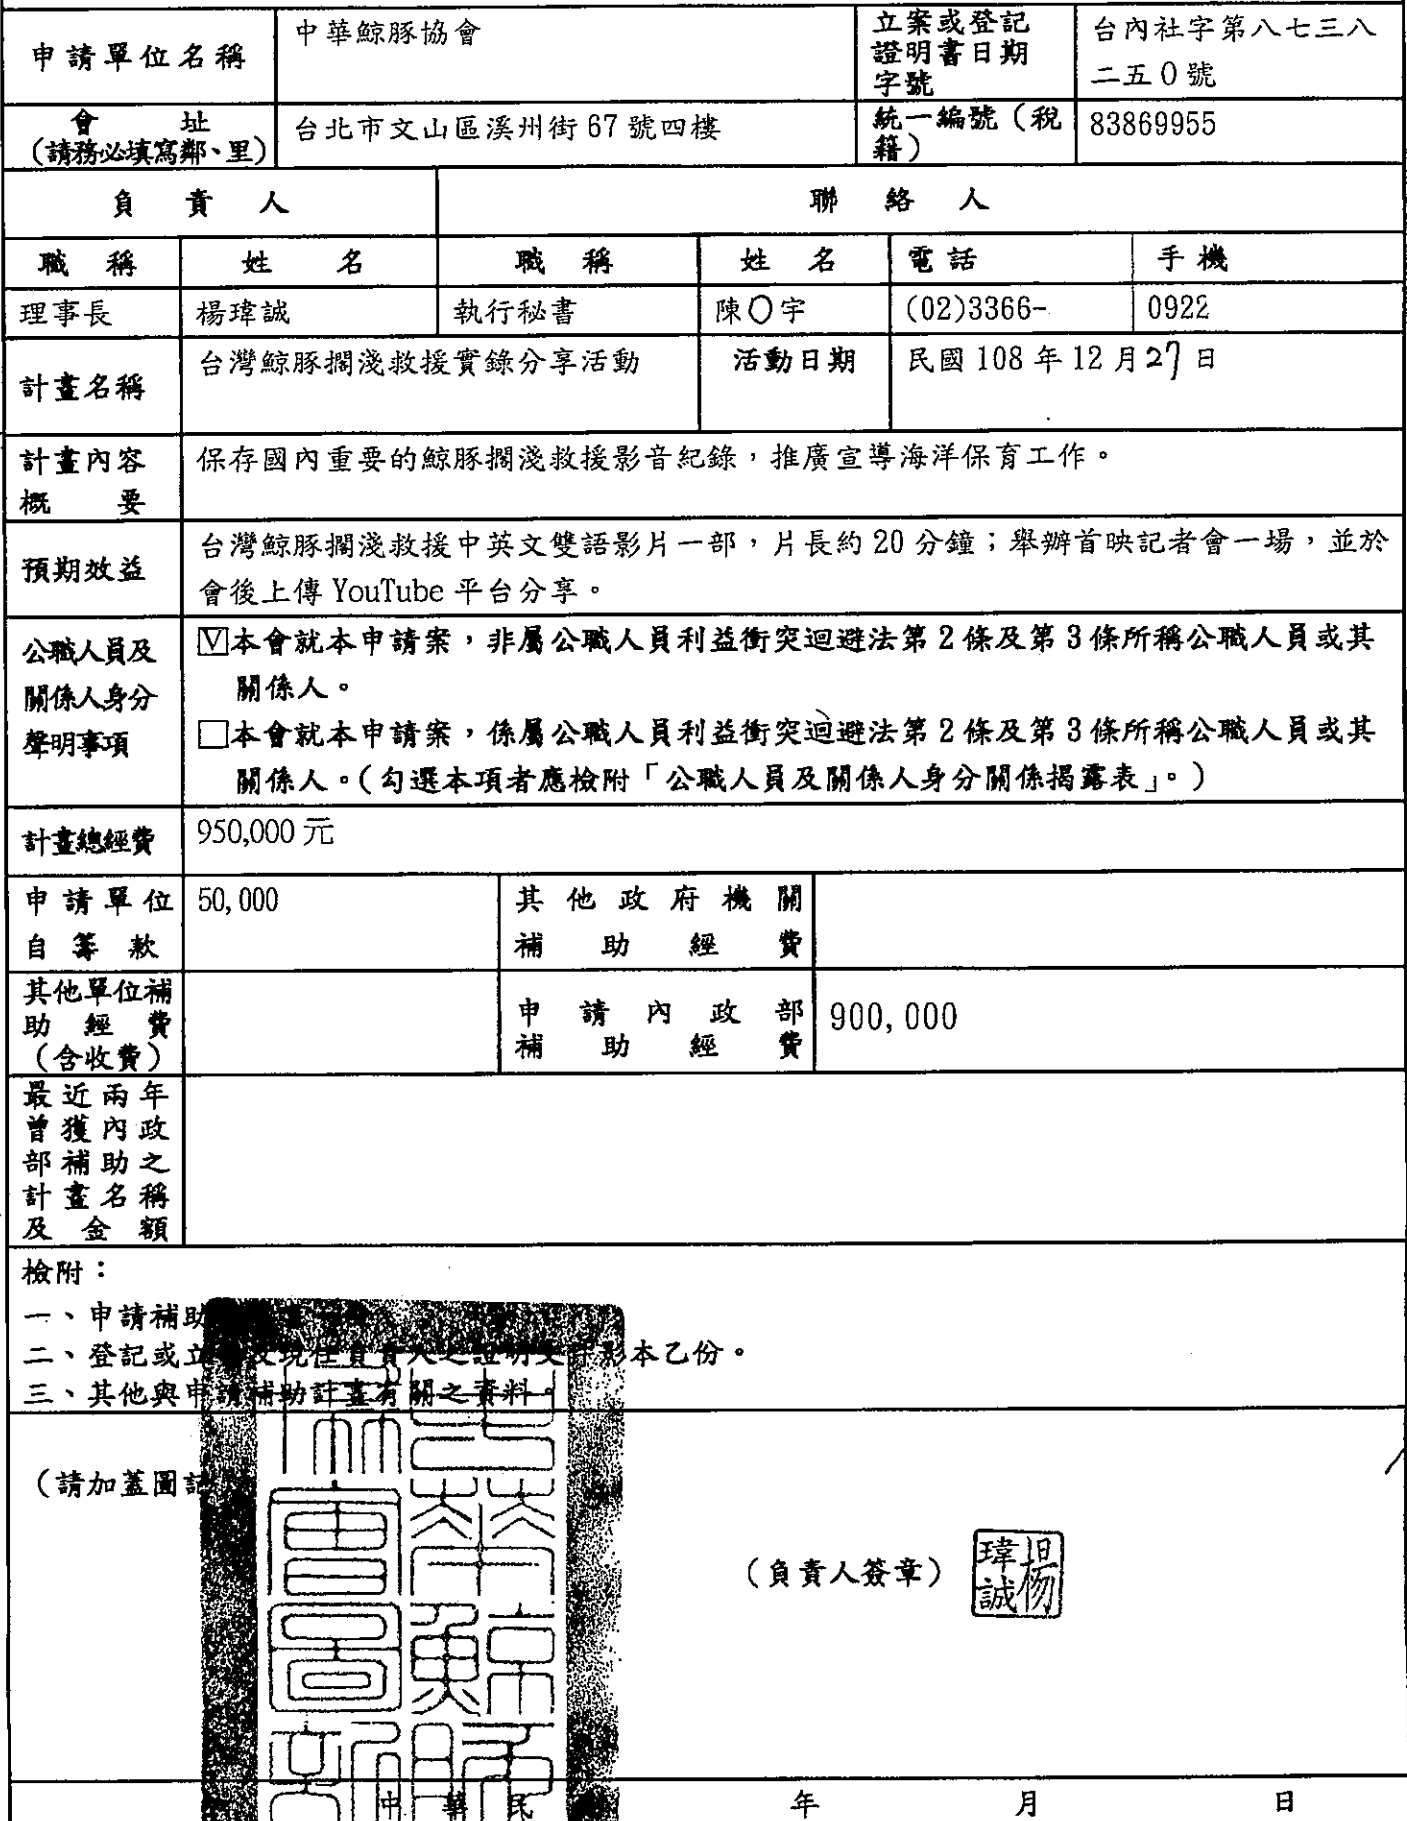 申請單位名稱
中華鯨豚協會
立案或登記
證明書日期
字號
台內社字第八七三八
二五0號
會址
(請務必填寫鄰、里)
台北市文山區溪州街 67 號四樓
統一編號(稅
籍)
83869955
負責人
聯絡人
職稱
姓名
職稱
姓名
電話
手機
理事長
楊瑋誠
執行秘書
陳○宇
(02)3366-
0922
計畫名稱
台灣鯨豚擱淺救援實錄分享活動
活動日期
民國 108 年 12 月 27 日
計畫內容
概要
保存國內重要的鯨豚擱淺救援影音紀錄，推廣宣導海洋保育工作。
預期效益
台灣鯨豚擱淺救援中英文雙語影片一部，片長約 20 分鐘；舉辦首映記者會一場，並於
會後上傳 YouTube 平台分享。
公職人員及
關係人身分
聲明事項
☑本會就本申請案，非屬公職人員利益衝突迴避法第 2 條及第 3 條所稱公職人員或其
關係人。
□本會就本申請案，係屬公職人員利益衝突迴避法第 2 條及第 3 條所稱公職人員或其
關係人。(勾選本項者應檢附「公職人員及關係人身分關係揭露表」。)
計畫總經費
950,000 元
申請單位
自籌款
50,000
其他政府機關
補助經費
其他單位補
助經費
(含收費)
申請內政部
補助經費
900,000
最近兩年
曾獲內政
部補助之
計畫名稱
及金額
檢附：
一、申請補助
二、登記或立案及現任負責人之證明文件影本乙份。
三、其他與申請補助計畫有關之資料。
(請加蓋圖記
(負責人簽章)
楊瑋誠
中華民
年
月
日